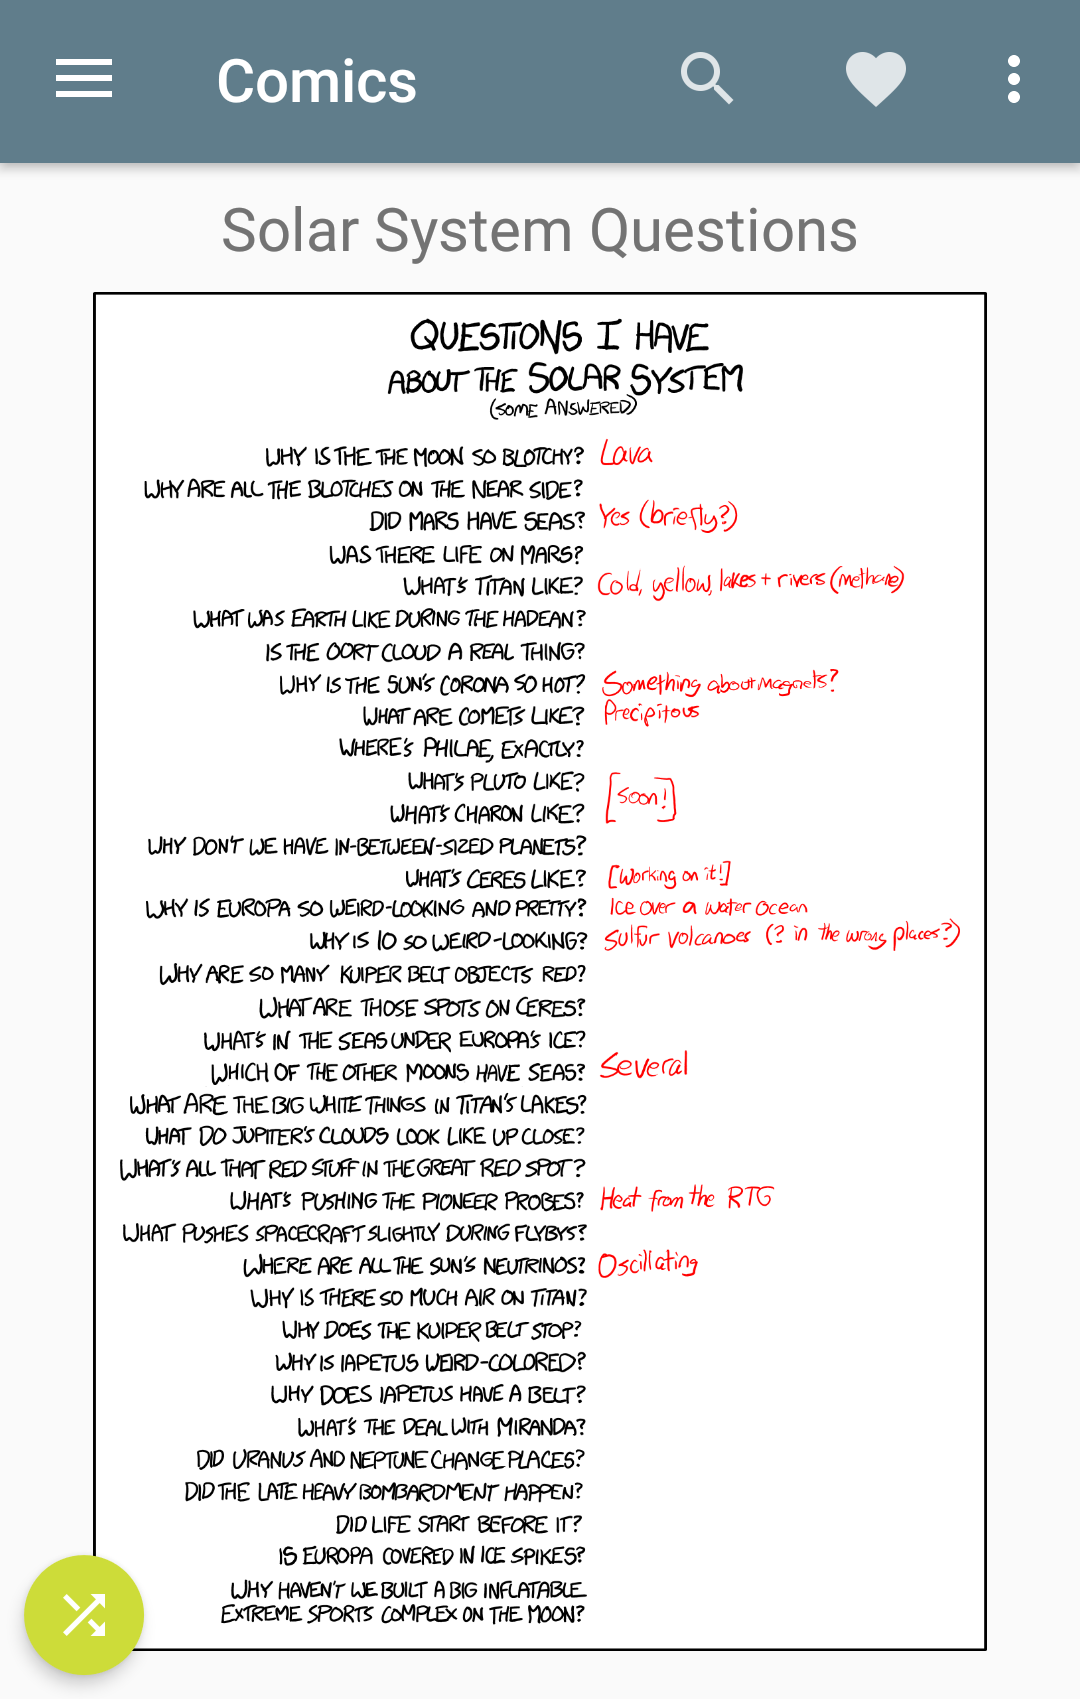 Comics
Solar System Questions
QUESTIONS I HAVE
ABOUT THE SOLAR SYSTEM
(SOME ANSWERED)
WHY IS THE THE MOON SO BLOTCHY? Lava
WHY ARE ALL THE BLOTCHES ON THE NEAR SIDE?
DID MARS HAVE SEAS? Yes (briefly?)
WAS THERE LIFE ON MARS?
WHAT'S TITAN LIKE? Cold, yellow, lakes + rivers (methane)
WHAT WAS EARTH LIKE DURING THE HADEAN?
IS THE OORT CLOUD A REAL THING?
WHY IS THE SUN'S CORONA SO HOT? Something about magnets?
WHAT ARE COMETS LIKE? Precipitous
WHERE'S PHILAE, EXACTLY?
WHAT'S PLUTO LIKE?
[soon!]
WHAT'S CHARON LIKE?
WHY DON'T WE HAVE IN-BETWEEN-SIZED PLANETS?
WHAT'S CERES LIKE? [Working on it!]
WHY IS EUROPA SO WEIRD-LOOKING AND PRETTY? Ice over a water ocean
WHY IS IO SO WEIRD-LOOKING? Sulfur volcanoes (? in the wrong places?)
WHY ARE SO MANY KUIPER BELT OBJECTS RED?
WHAT ARE THOSE SPOTS ON CERES?
WHAT'S IN THE SEAS UNDER EUROPA'S ICE?
WHICH OF THE OTHER MOONS HAVE SEAS? Several
WHAT ARE THE BIG WHITE THINGS IN TITAN'S LAKES?
WHAT DO JUPITER'S CLOUDS LOOK LIKE UP CLOSE?
WHAT'S ALL THAT RED STUFF IN THE GREAT RED SPOT?
WHAT'S PUSHING THE PIONEER PROBES? Heat from the RTG
WHAT PUSHES SPACECRAFT SLIGHTLY DURING FLYBYS?
WHERE ARE ALL THE SUN'S NEUTRINOS? Oscillating
WHY IS THERE SO MUCH AIR ON TITAN?
WHY DOES THE KUIPER BELT STOP?
WHY IS IAPETUS WEIRD-COLORED?
WHY DOES IAPETUS HAVE A BELT?
WHAT'S THE DEAL WITH MIRANDA?
DID URANUS AND NEPTUNE CHANGE PLACES?
DID THE LATE HEAVY BOMBARDMENT HAPPEN?
DID LIFE START BEFORE IT?
IS EUROPA COVERED IN ICE SPIKES?
WHY HAVEN'T WE BUILT A BIG INFLATABLE
EXTREME SPORTS COMPLEX ON THE MOON?